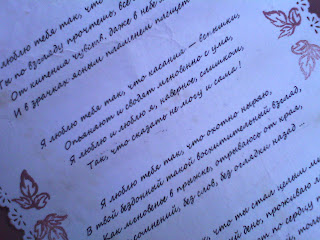 люблю тебя так, что
Ты по взгляду прочтешь, все
От кипения чувств, даже в небе
И в зрачках ясным пламенем плещет
Я люблю тебя так, что касания — вспышки,
Опоясают и сводят мгновенно с ума,
Я люблю и люблю я, наверное, слишком,
Так, что сказать не могу и сама!
Я люблю тебя так, что охотно ныряю,
В твой бездонный такой восхитительный взгляд,
Как мгновенье в прыжке, отрываюсь от края,
сомнений, без слов, без оглядки назад...
что ты стал целым
день, проживаю
по сердцу